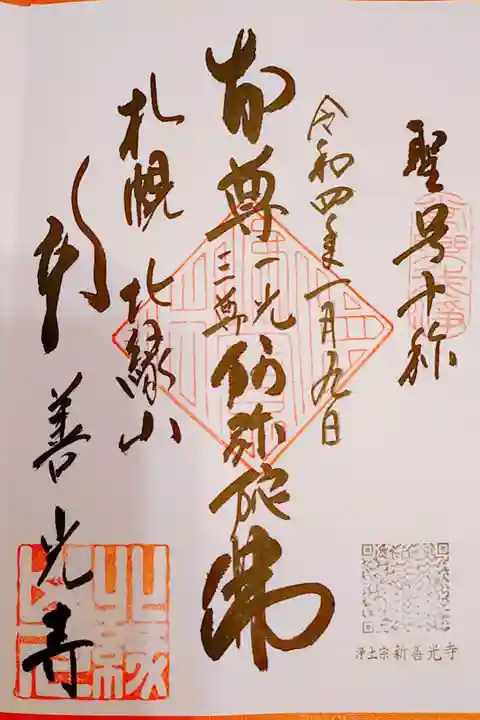 聖号十称
令和四年一月九日
本尊一光三尊阿弥陀佛
札幌 北縁山
新善光寺
北縁山
浄土宗新善光寺